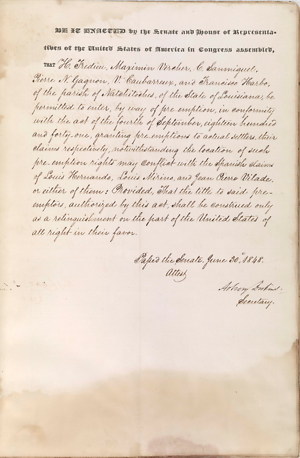 BE IT ENACTED by the Senate and House of Representa-
tives of the United States of America in Congress assembled,
THAT H. Fredieu, Maximin Vercher, C. Sanmiguel,
Pierre N. Gagnon, V. Caubarreux, and Francisco Harbo,
of the parish of Natchitoches, of the State of Louisiana, be
permitted to enter, by way of pre-emption, in conformity
with the act of the fourth of September, eighteen hundred
and forty-one, granting pre-emptions to actual settlers, their
claims respectively, notwithstanding the location of such
pre-emption rights may conflict with the Spanish claims
of Louis Hernando, Louis Merino, and Jean Piero Vilade,
or either of them: Provided, That the title to said pre-
emptors, authorized by this act, shall be construed only
as a relinquishment on the part of the United States of
all right in their favor.
Passed the Senate June 30th, 1848.
Attest
Secretary.